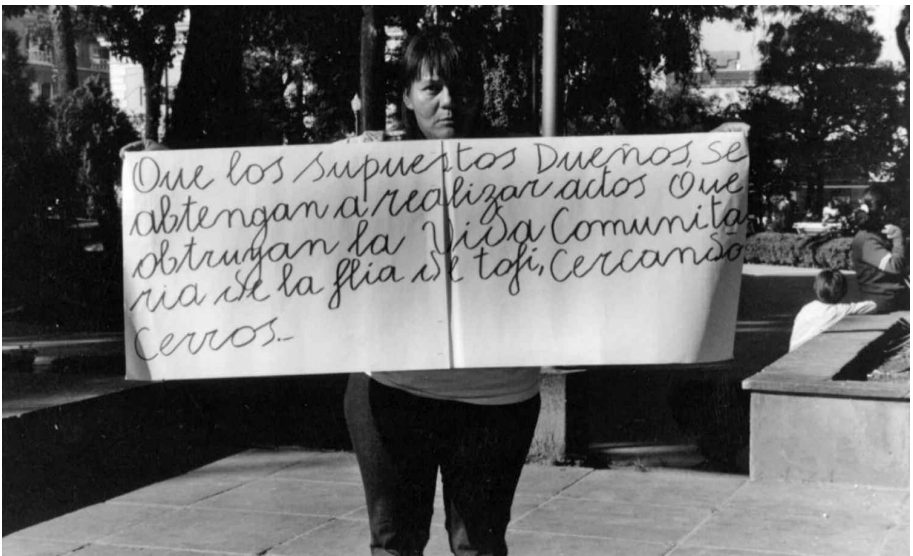 Que los supuestos Dueños, se
abtengan a realizar actos Que
obtruyan la Vida Comunita
ria de la flia de tofi, Cercando
Cerros..